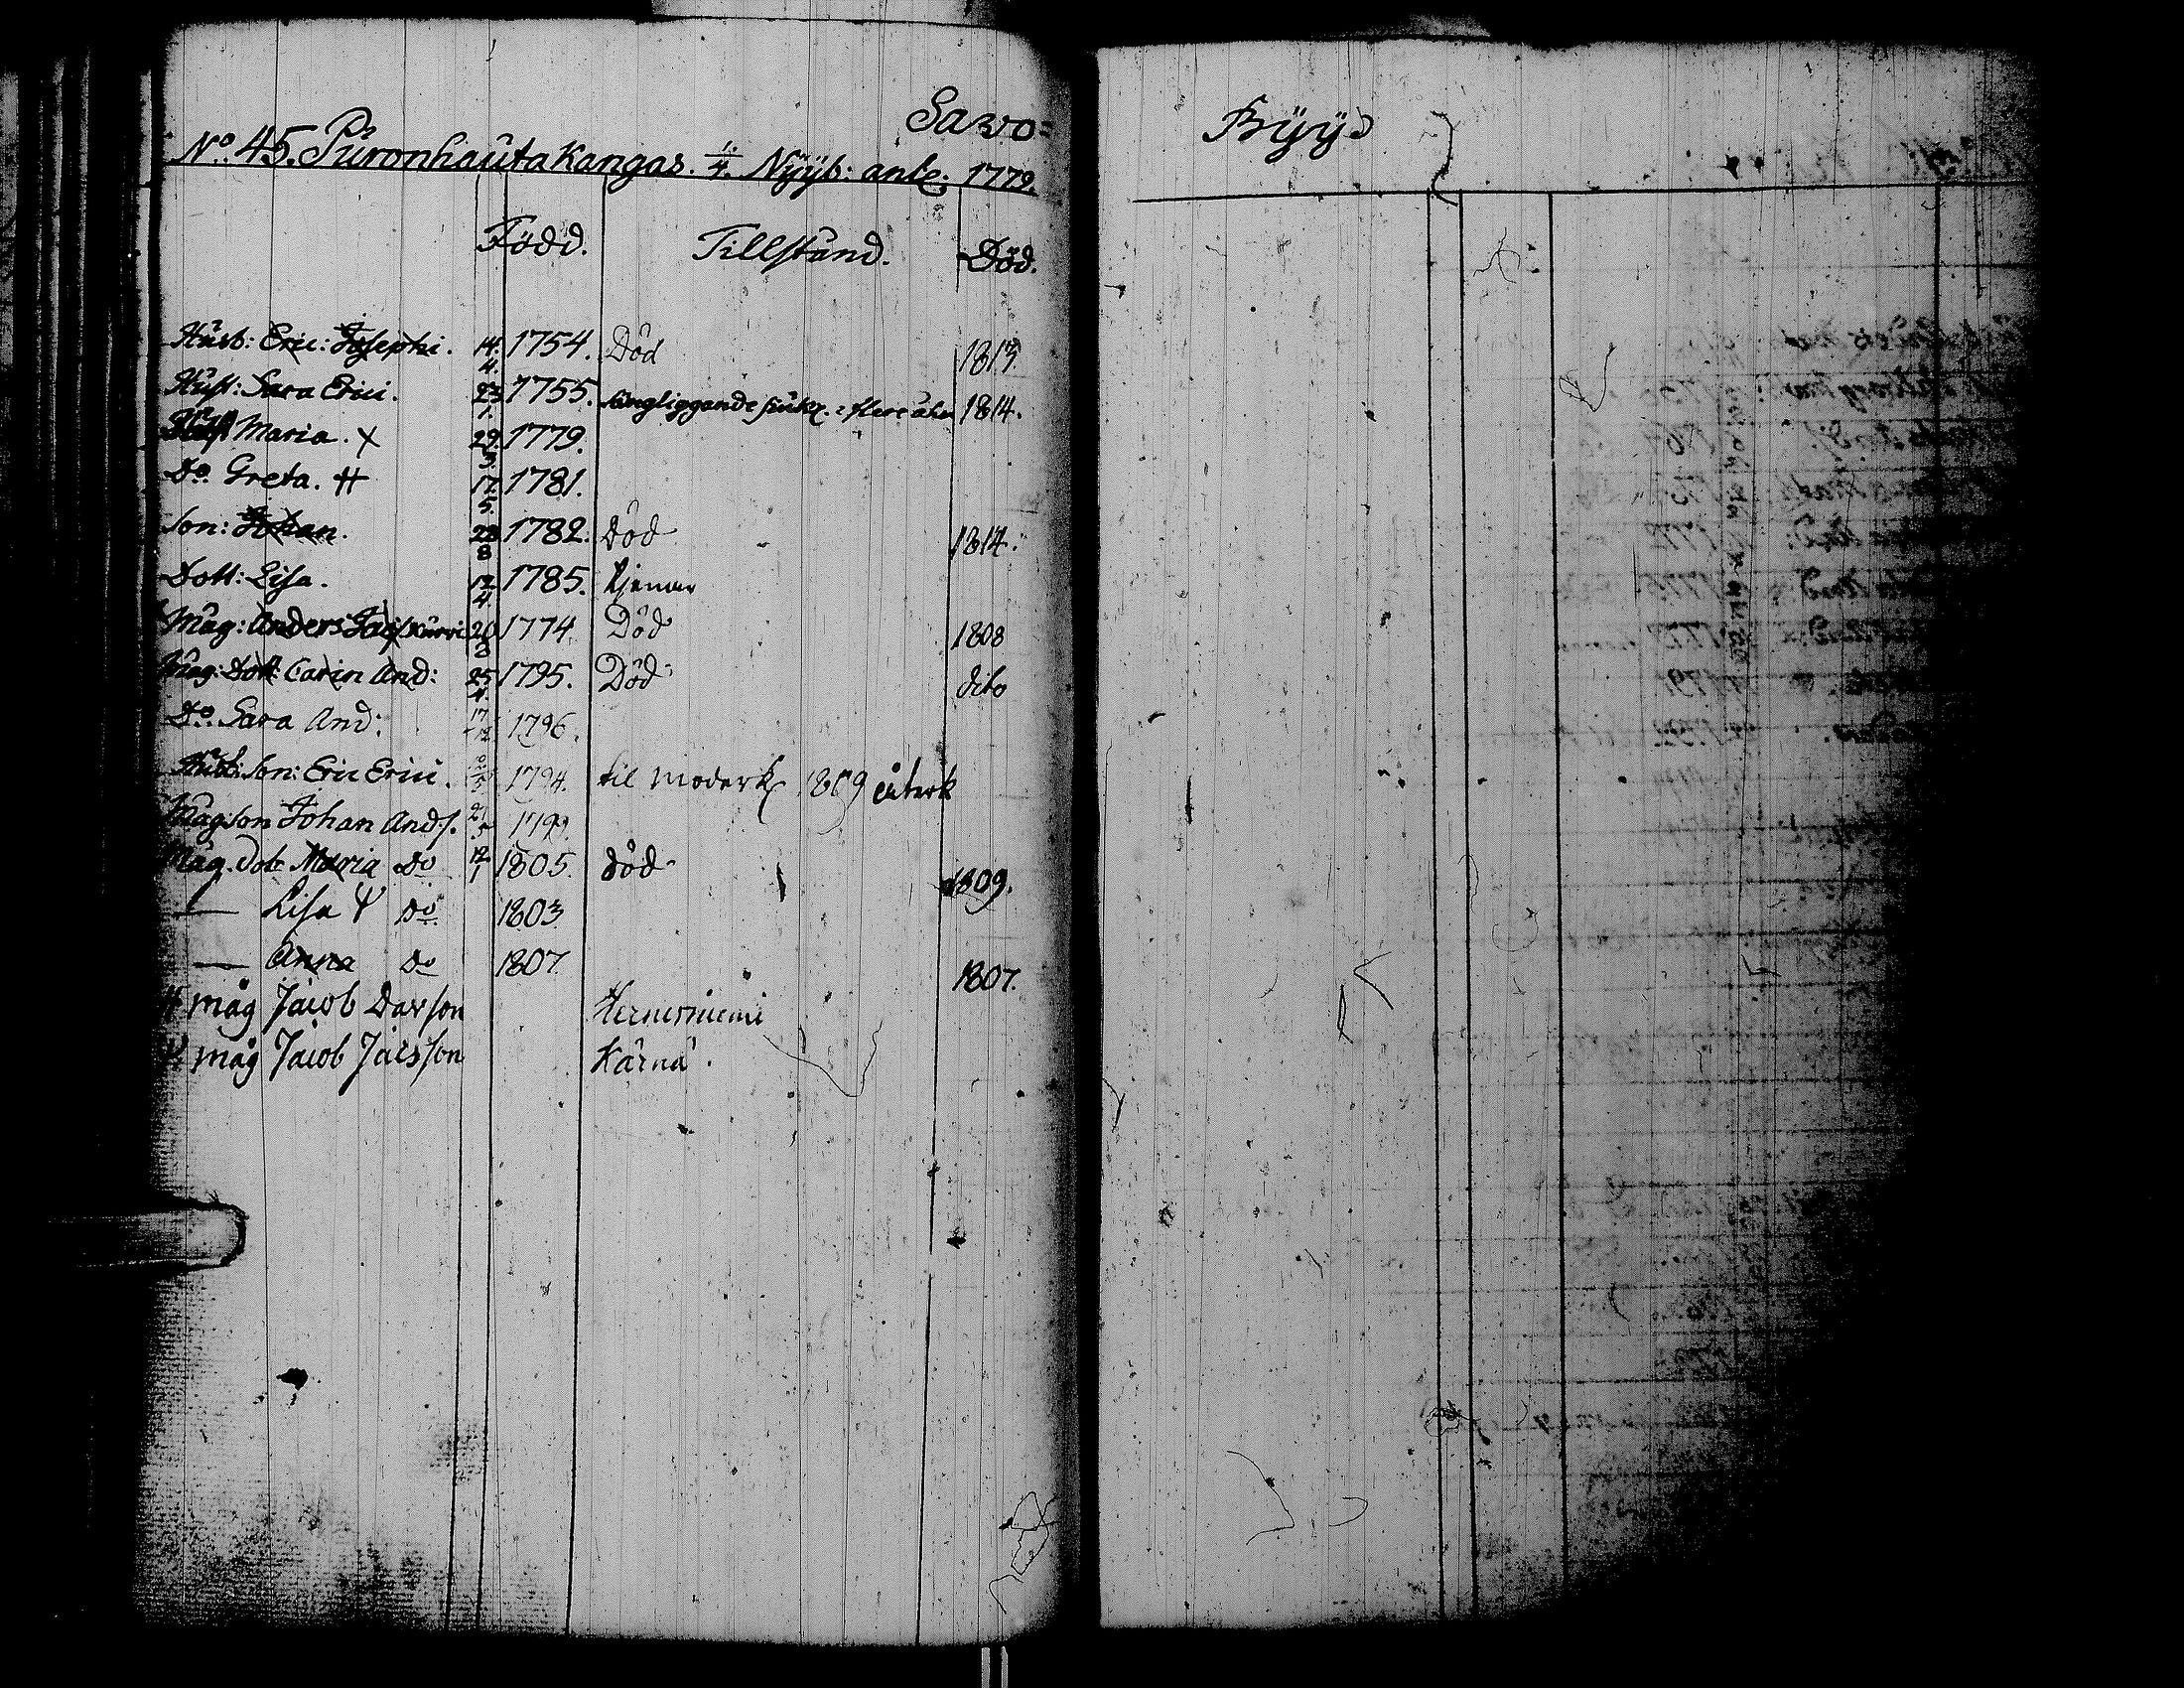 Savo=
No. 45. Puronhautakangas. 1/4. Nyyb: ante: 1779.
Född. Tillstånd. Död.
Husb: Eric: Josephi. 14/4. 1754. Död 1813.
Hust: Sara Erici. 23/1. 1755. sängliggande siukl. i flere åhr 1814.
Maria. X 29/3. 1779.
Do. Greta. # 17/5. 1781.
Son: Johan. 28/8 1782. Död 1814.
Dott: Lisa. 17/4. 1785. tjenar
Måg: Anders 20/8 1774. Död 1808
Måg: Dott: Carin And: 25/4. 1795. Död dito
Do. Sara And: 17/12 1796.
Husb: Son: Eric Erici. 1794. til moderk 1809 återk
Mågson Johan Ands.
Måg. Dot Maria Do 12/1 1805. död 1809.
— Lisa Do. 1803.
— Anna Do 1807. 1807.
# måg Jacob Davson Hernesniemi
måg Jacob Jacsson Kärnä.
Byys